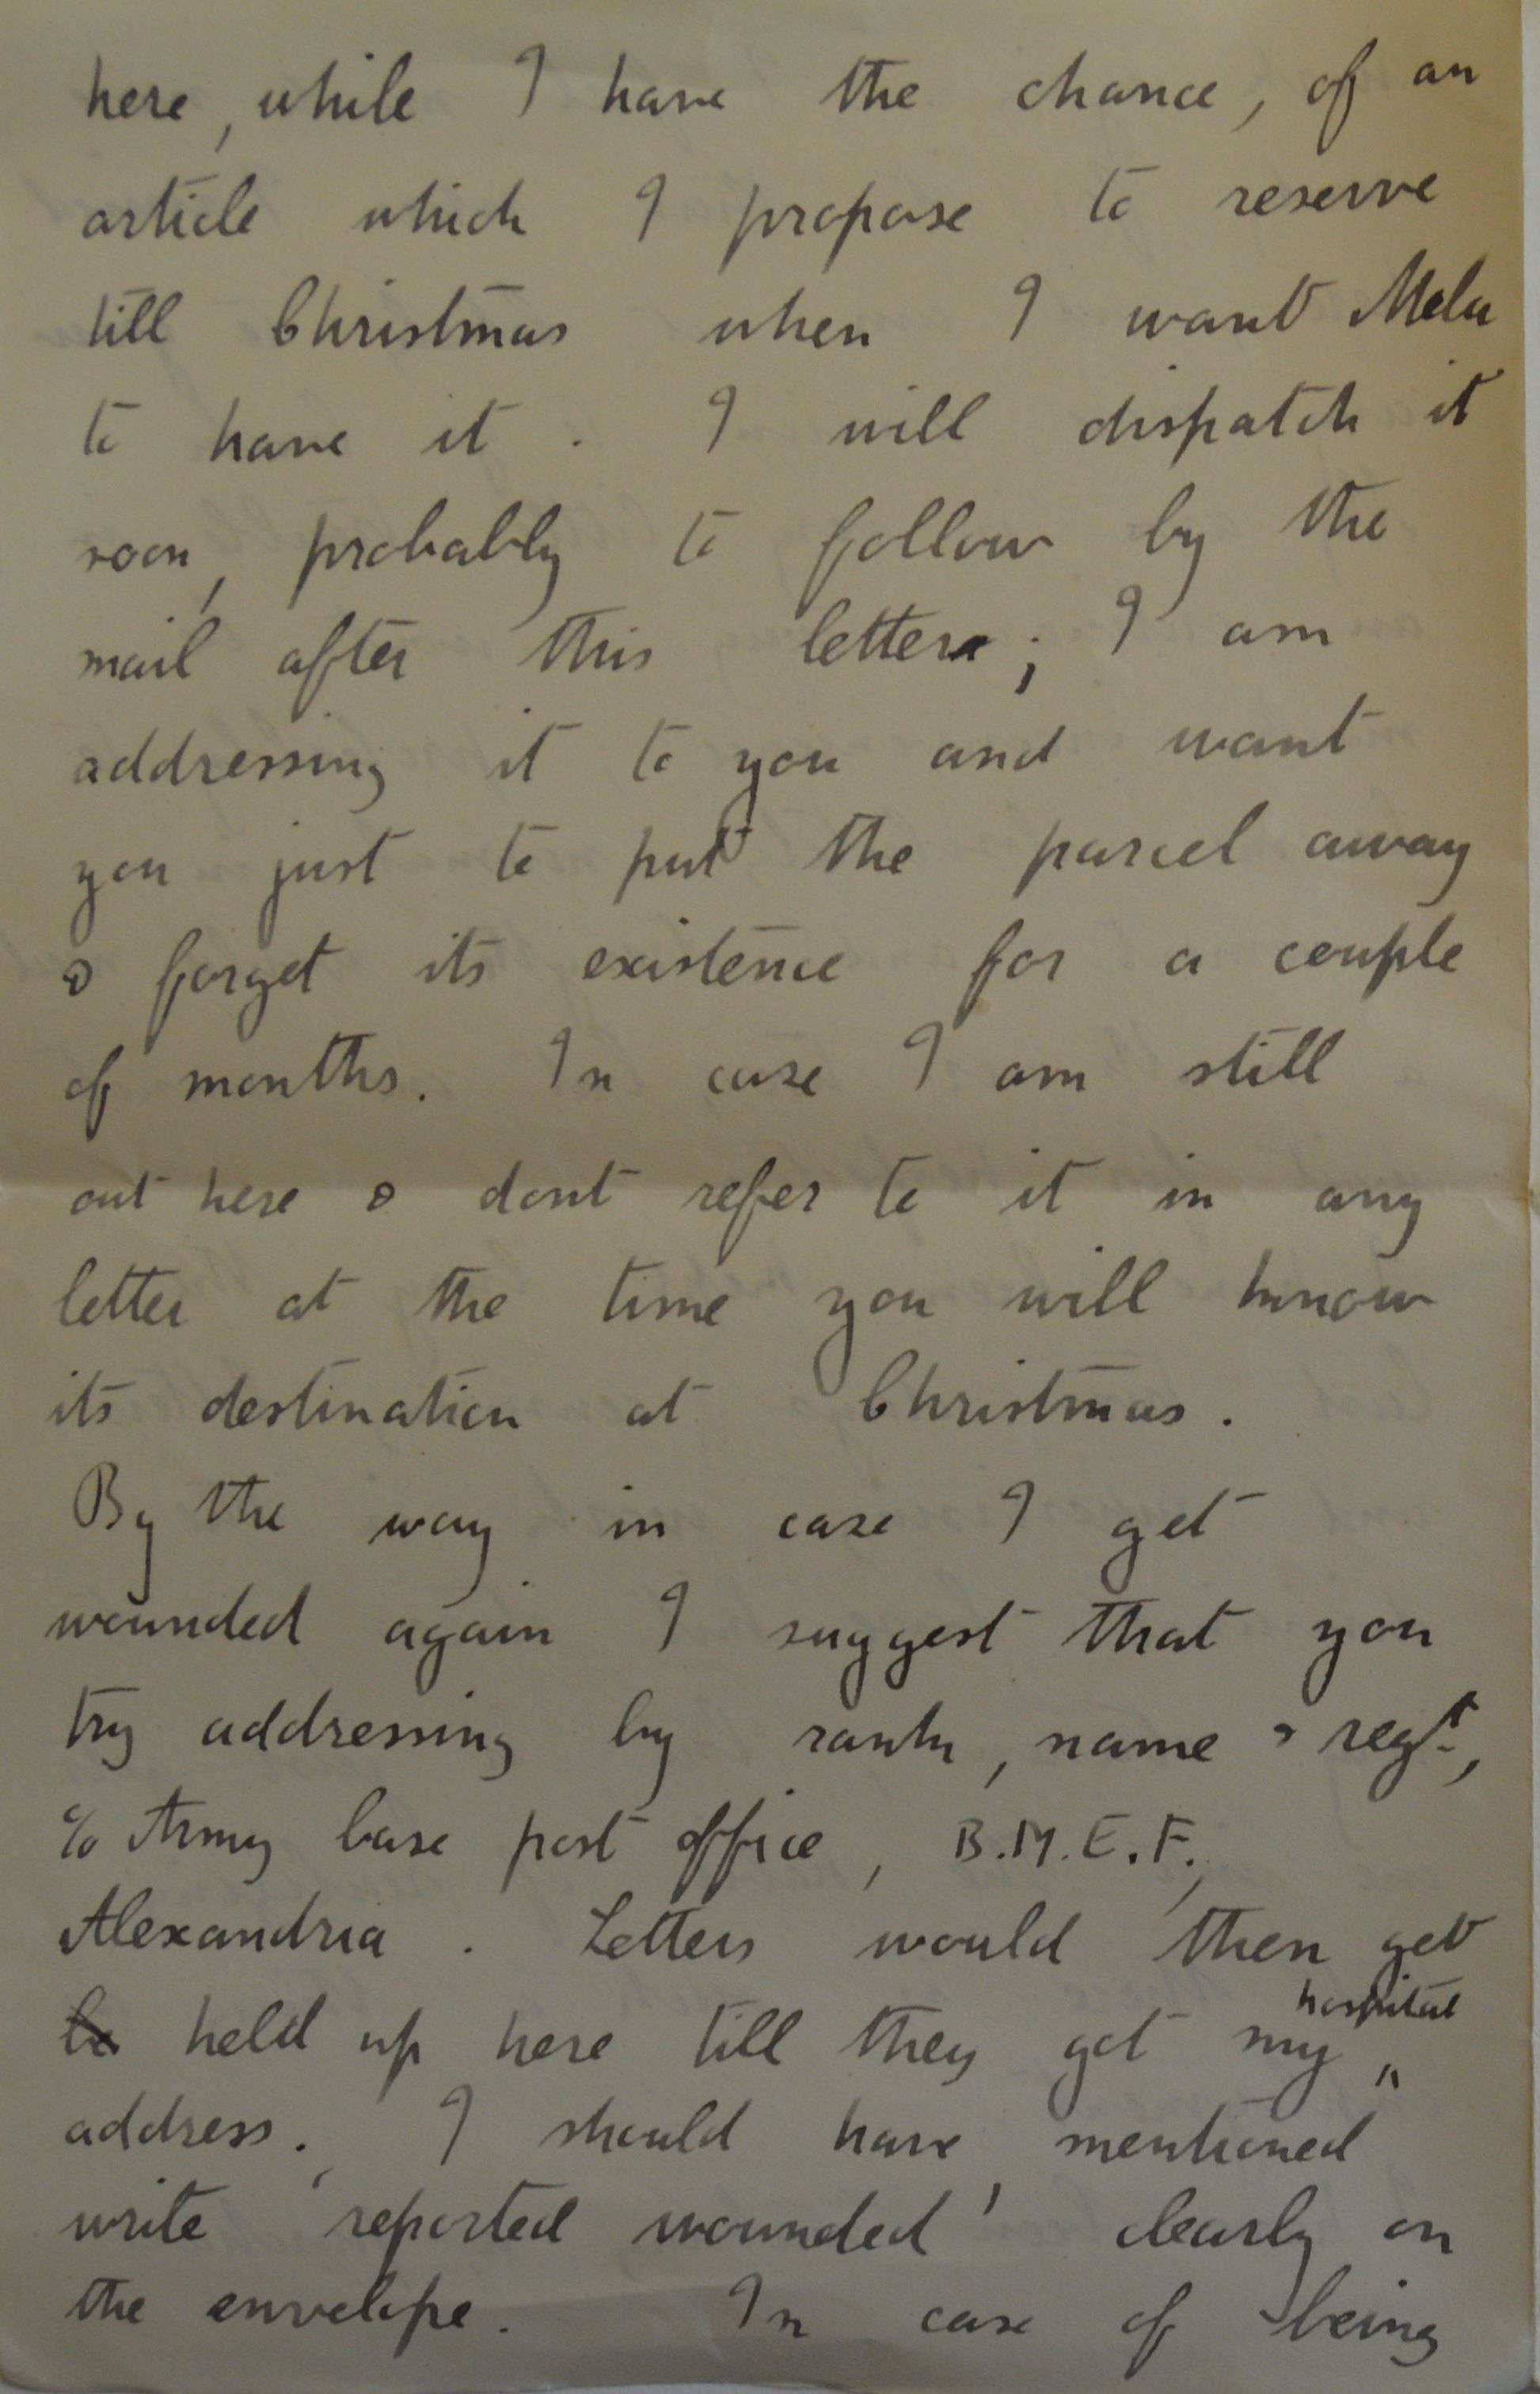 here, while I have the chance, of an
article which I propose to reserve
till Christmas when I want Mela
to have it. I will dispatch it
soon, probably to follow by the
mail after this letter; I am
addressing it to you and want
you just to put the parcel away
& forget its existence for a couple
of months. In case I am still
out here & dont refer to it in any
letter at the time you will know
its destination at Christmas.
By the way in case I get
wounded again I suggest that you
try addressing by rank, name & regt,
c/o Army base post office, B.M.E.F.,
Alexandria. Letters would then get
be held up here till they get my hospital
address. I should have mentioned
write 'reported wounded' clearly on
the envelope. In case of being